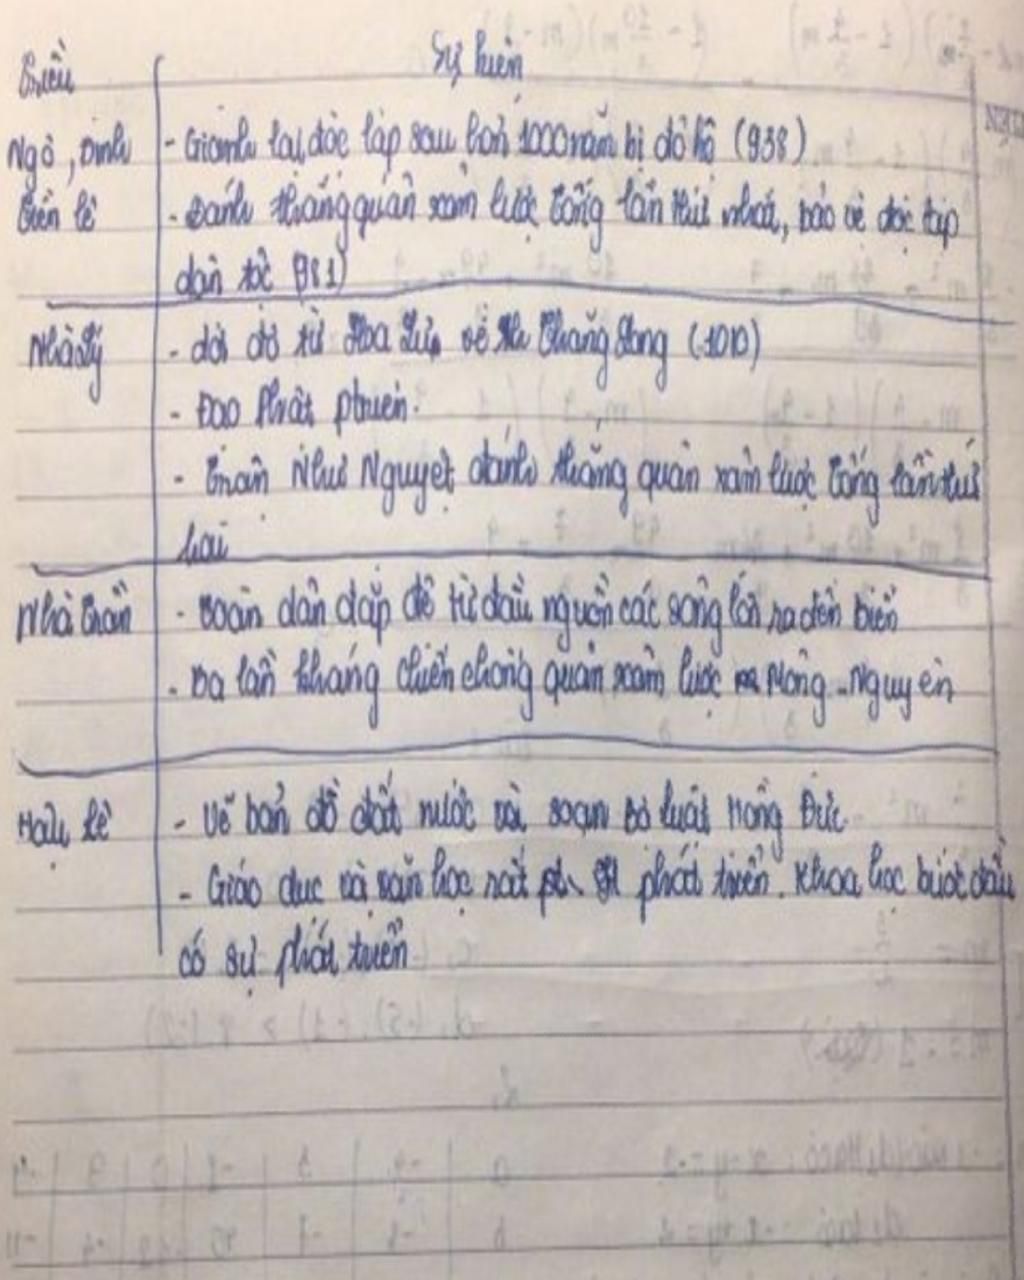 Triều
Sự kiện
Ngô, Đinh
Tiền lê
- Giành lại độc lập sau hơn 1000 năm bị đô hộ (938)
- Đánh thắng quân xâm lược Tống lần thứ nhất, bảo vệ độc lập
dân tộc (981)
Nhà Lý
- dời đô từ Hoa Lư về Thăng Long (1010)
- Đạo Phật ptriển.
- Trận Như Nguyệt đánh thắng quân xâm lược Tống lần thứ
hai
Nhà Trần
- Toàn dân đắp đê từ đầu nguồn các sông lớn ra đến biển
- Ba lần kháng chiến chống quân xâm lược Mông - Nguyên
Hậu lê
- Vẽ bản đồ đất nước và soạn Bộ luật Hồng Đức
- Giáo dục và văn học rất phát triển. Khoa học bước đầu
có sự phát triển